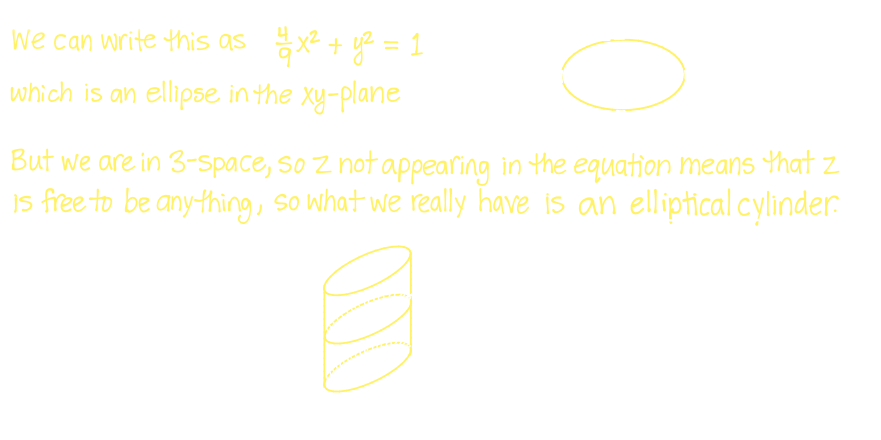 We can write this as 4/9 x² + y² = 1
which is an ellipse in the xy-plane
But we are in 3-space, so z not appearing in the equation means that z
is free to be anything, so what we really have is an elliptical cylinder.